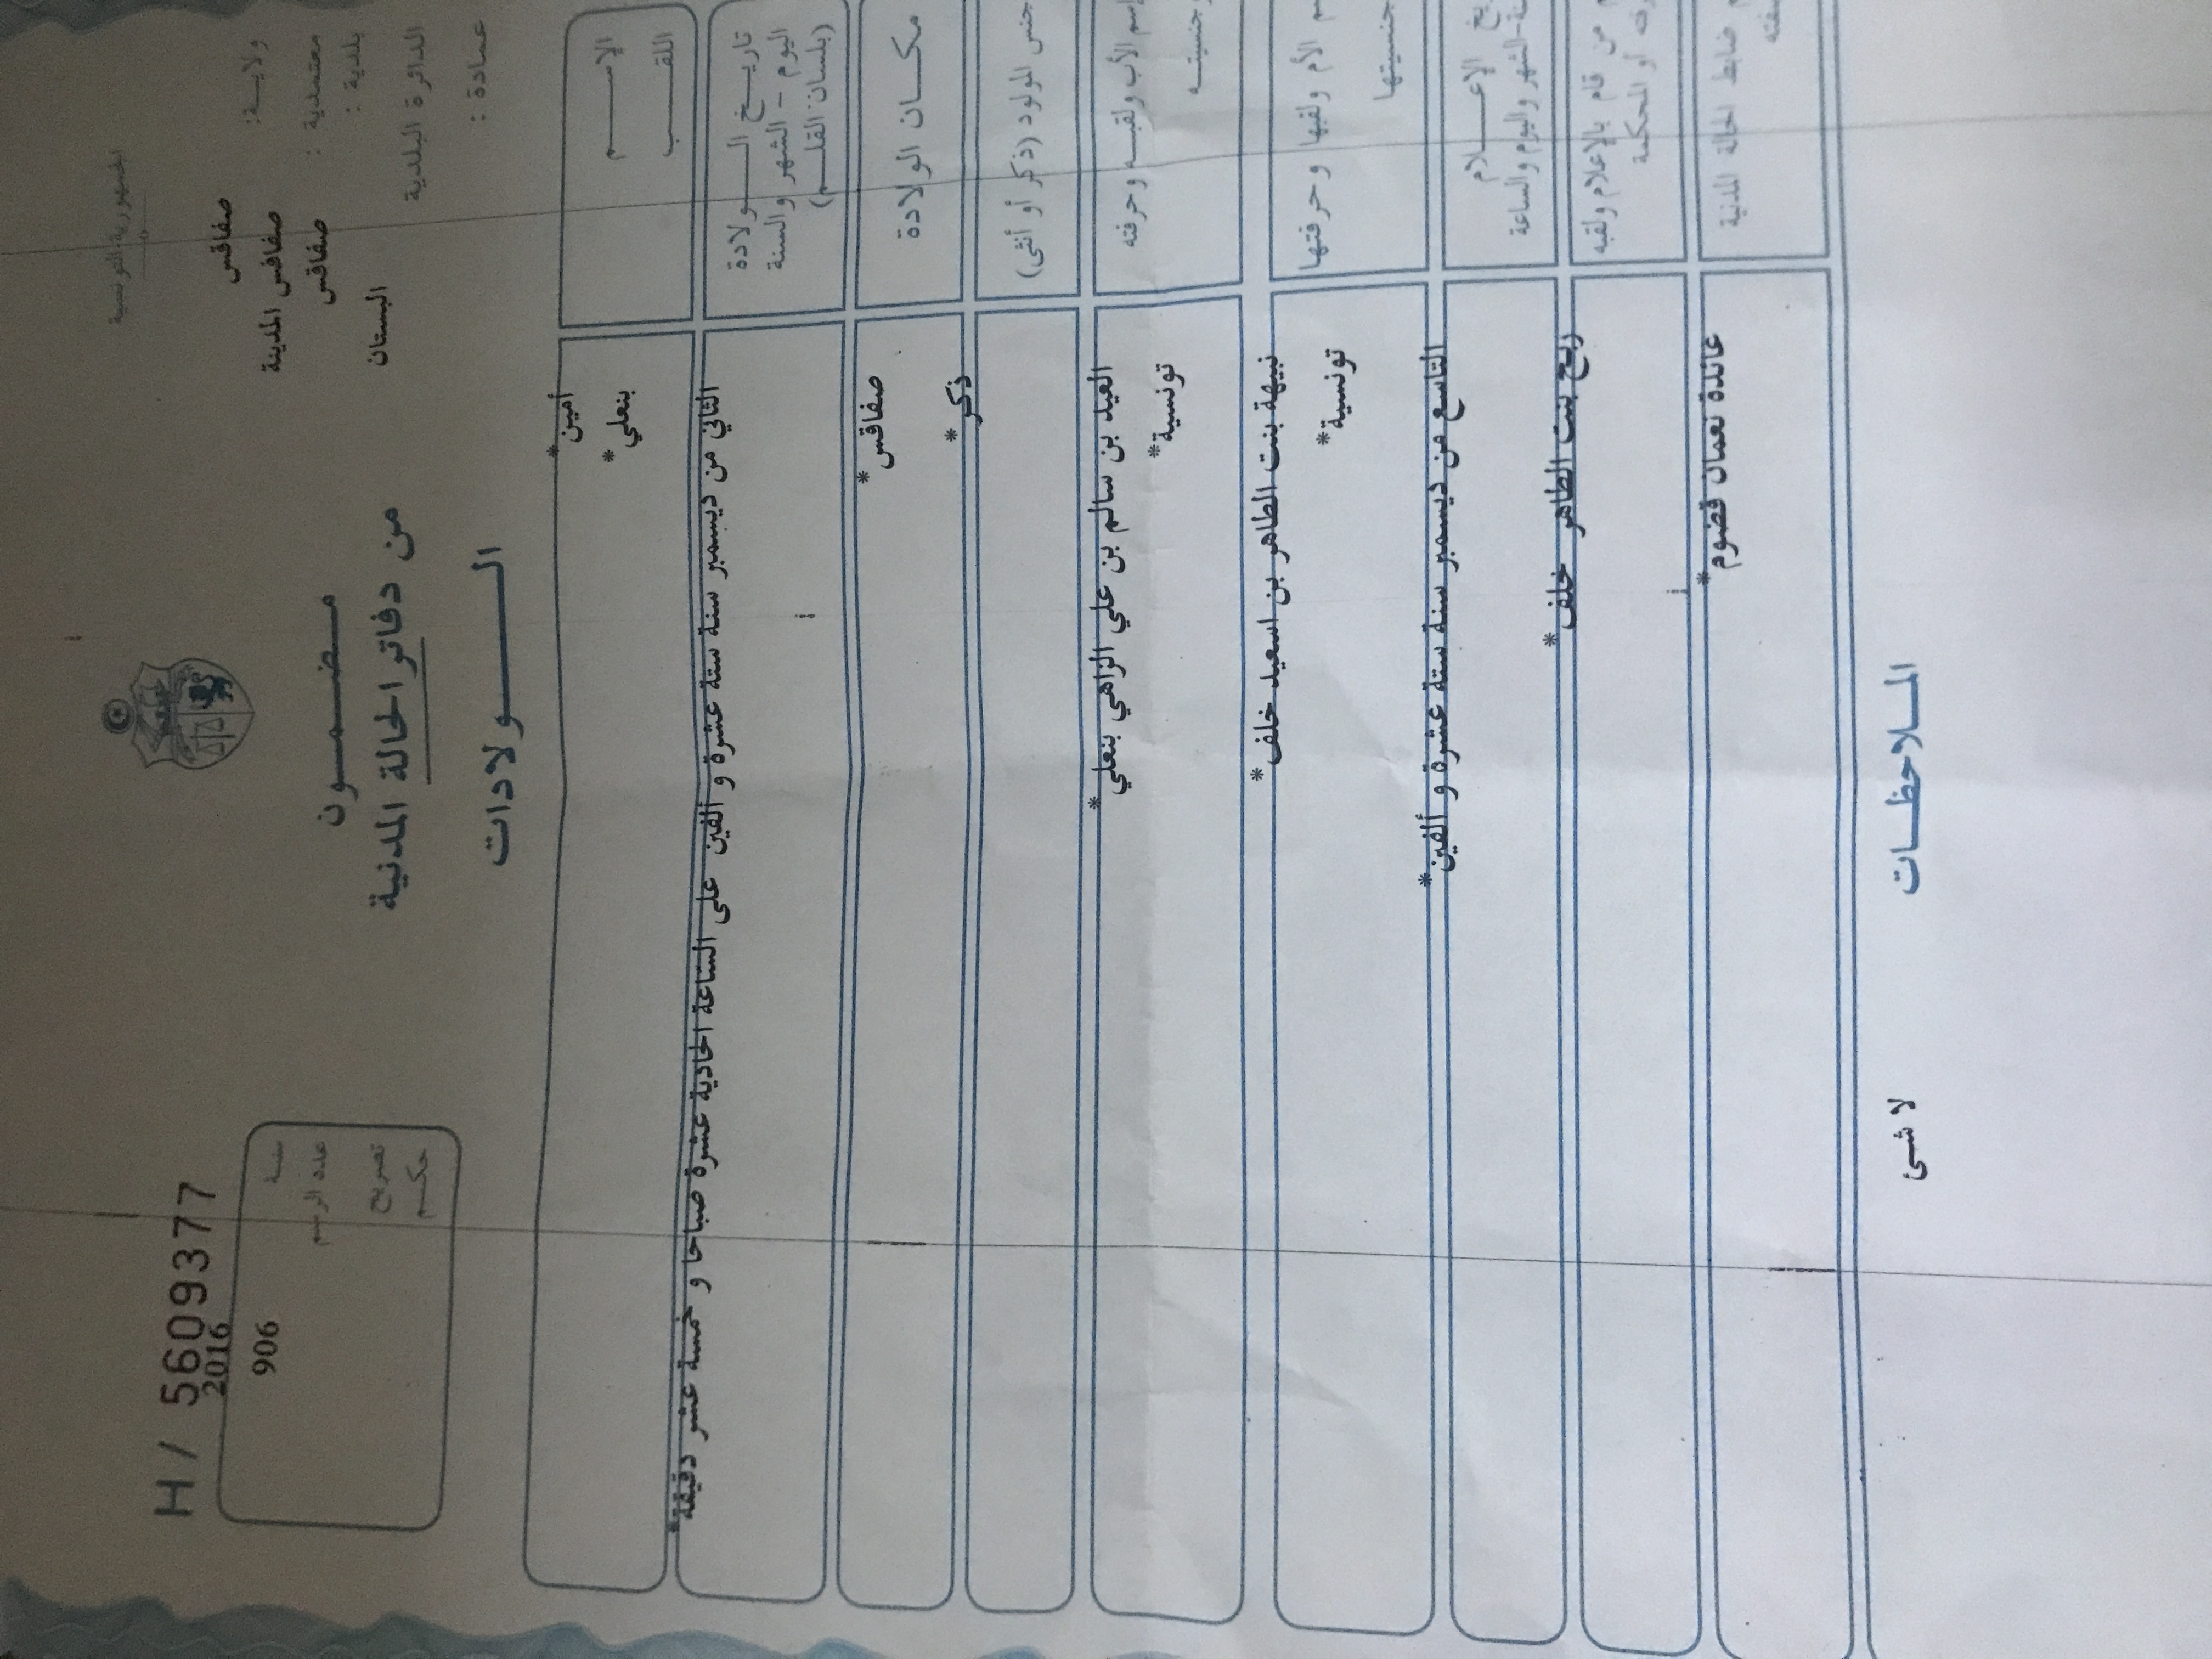 الجمهورية التونسية
ولايـــة: صفاقس
معتمدية : صفاقس المدينة
بلدية : صفاقس
الدائرة البلدية البستان
عمادة :
H / 5609377
2016
سنــة
906
عدد الرسـم
تصريح
حكـم
مـضـمـــون
من دفاتر الحالة المدنية
الـــــولادات
الإســـــم أمين*
اللقـــــب بنعلي*
تاريـــخ الــــولادة
اليوم - الشهر والسنة
(بلسان القلـــم)
الثاني من ديسمبر سنة ستة عشرة و ألفين على الساعة الحادية عشرة صباحا و خمسة عشر دقيقة*
مكـــان الولادة صفاقس*
جنس المولود (ذكر أو أنثى) ذكر*
إسم الأب ولقبـــه وحرفته العيد بن سالم بن علي الزاهي بنعلي*
وجنسيتـــه تونسية*
الأم ولقبها وحرفتها نبيهة بنت الطاهر بن اسعيد خلف*
جنسيتها تونسية*
الإعـــــلام
الشهر واليوم والساعة
التاسع من ديسمبر سنة ستة عشرة و ألفين*
من قام بالإعلام ولقبه
أو المحكمة
ربح بنت الطاهر خلف*
ضابط الحالة المدنية
عائدة نعمان قضوم*
المـــلاحظـــات
لا شئ